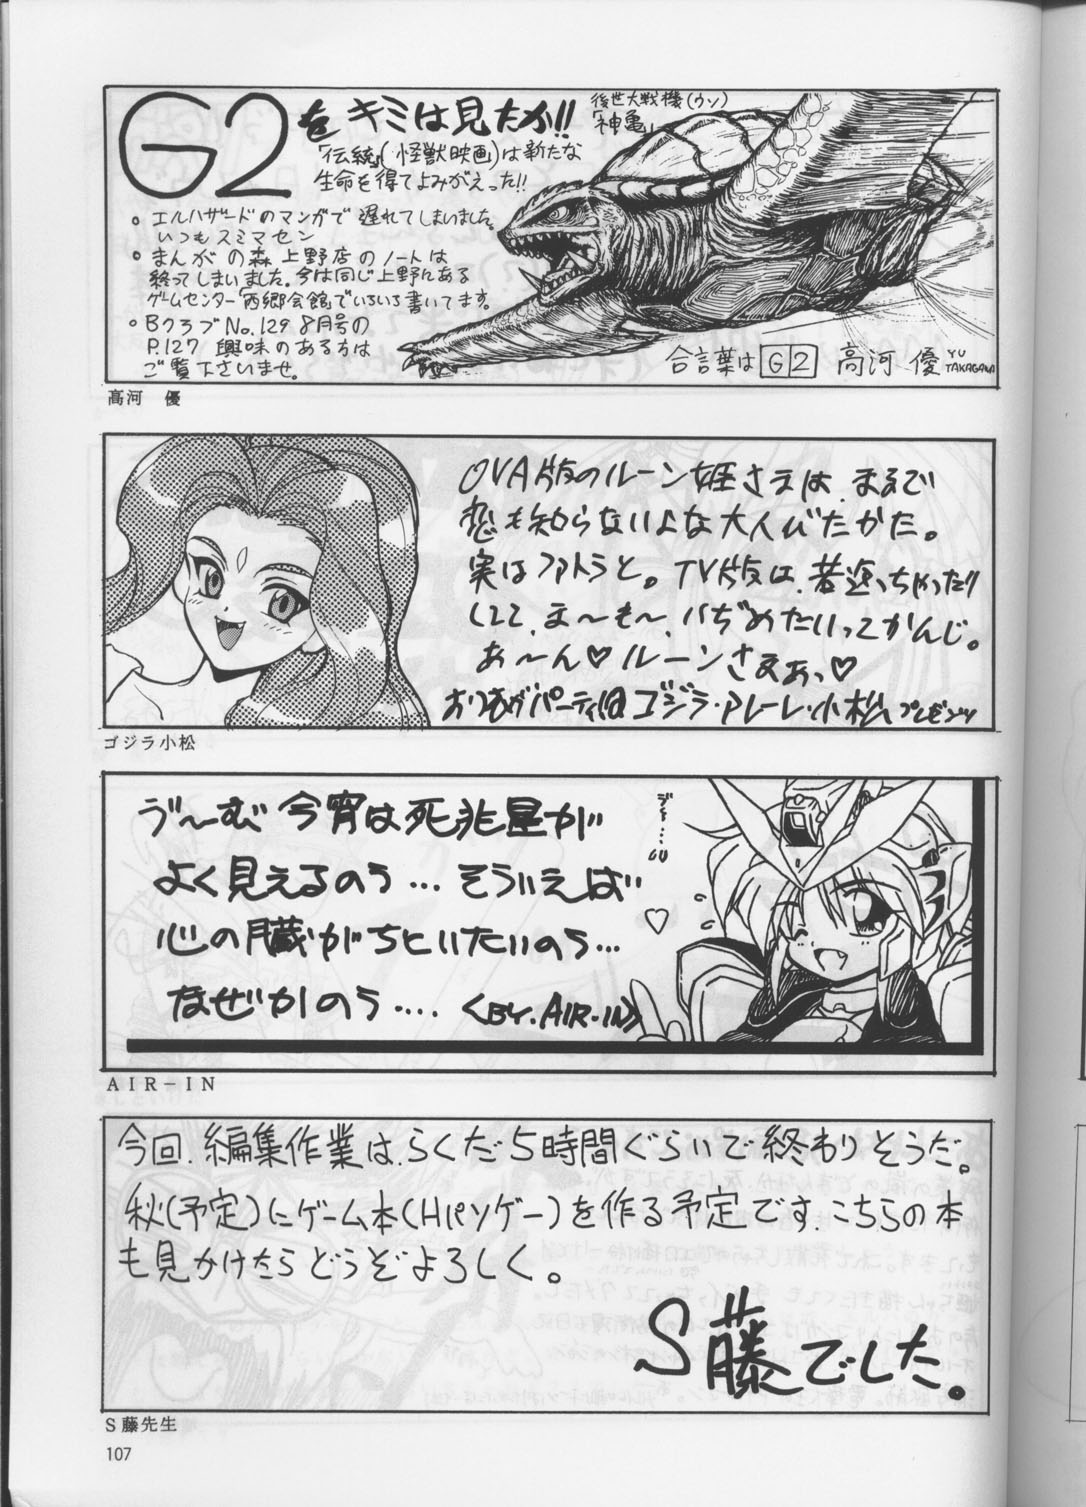 G2を キミは見たか!!
「伝統」(怪獣映画)は新たな
生命を得てよみがえった!!
後世大戦機(ウソ)
「神亀」
• エルハザードのマンガで遅れてしまいました。
いつもスミマセン
• まんがの森上野店のノートは
終ってしまいました。今は同じ上野にある
ゲームセンター「西郷会館」でいろいろ書いてます。
• BクラブNo.129 8月号の
P.127 興味のある方は
ご覧下さいませ。
合言葉はG2 高河 優 YU TAKAGAWA
高河 優
OVA版のルーン姫さまは、まるで
恋も知らないよな大人びたかた。
実はファトラと。TV版は、若返っちゃったり
してて、ま〜も〜、いぢめたいってかんじ。
あ〜ん♡ルーンさまぁっ♡
ゴジラ・アレーレ・小松 プレゼンツ
ゴジラ小松
ゔ〜む 今宵は死兆星が
よく見えるのう…そういえば
心の臓がちといたいのう…
なぜかのう…. <BY.AIR-IN>
AIR−IN
今回、編集作業は、らくだ5時間ぐらいで終わりそうだ。
秋(予定)にゲーム本(Hパソゲー)を作る予定です、こちらの本
も見かけたらどうぞよろしく。
S藤でした。
S藤先生
107